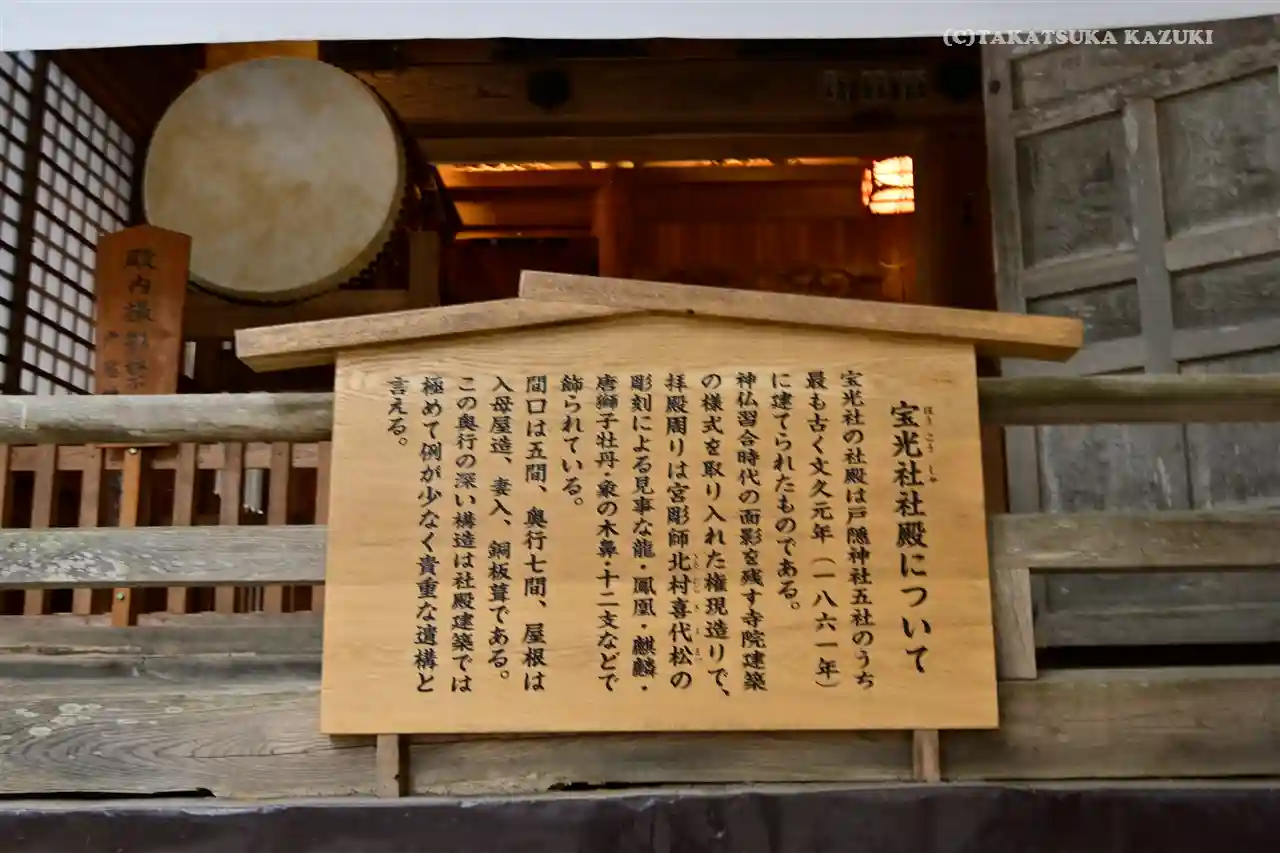 (C)TAKATSUKA KAZUKI
宝光社社殿について
ほうこうしゃ
宝光社の社殿は戸隠神社五社のうち
最も古く文久元年（一八六一年）
に建てられたものである。
神仏習合時代の面影を残す寺院建築
の様式を取り入れた権現造りで、
拝殿周りは宮彫師北村喜代松の
彫刻による見事な龍・鳳凰・麒麟・
唐獅子牡丹・象の木鼻・十二支などで
飾られている。
間口は五間、奥行七間、屋根は
入母屋造、妻入、銅板葺である。
この奥行の深い構造は社殿建築では
極めて例が少なく貴重な遺構と
言える。
殿内撮影